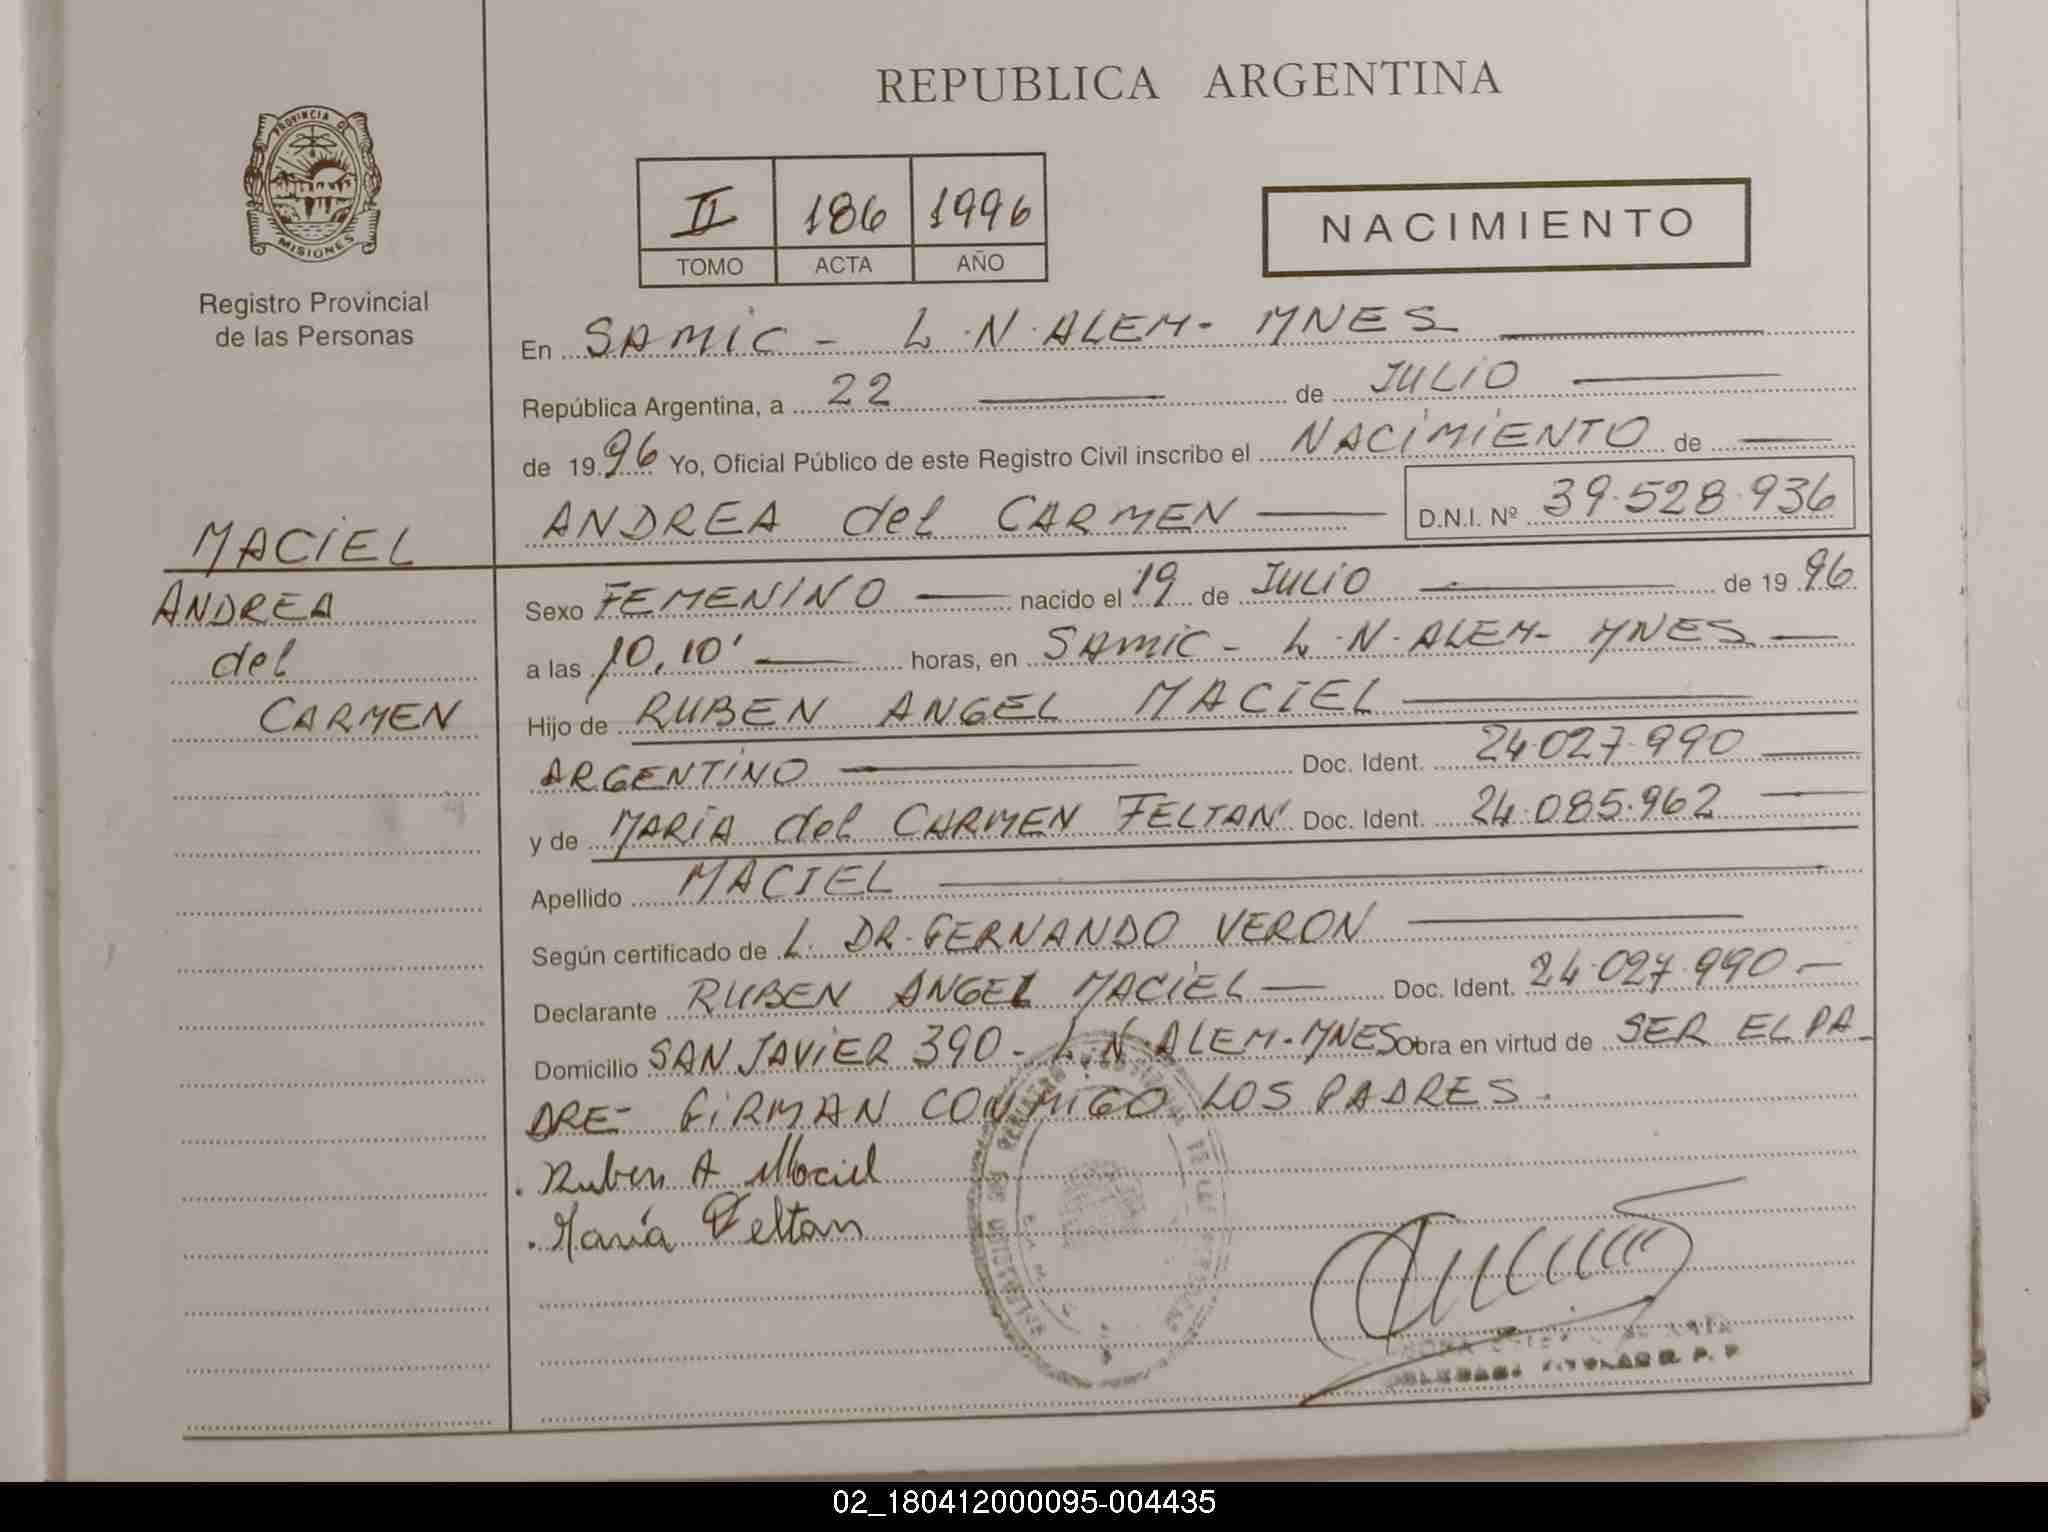 REPUBLICA ARGENTINA
PROVINCIA DE
MISIONES
Registro Provincial
de las Personas
II 186 1996
TOMO ACTA AÑO
NACIMIENTO
En SAMIC - L.N.ALEM- MNES
República Argentina, a 22 de JULIO
de 1996 Yo, Oficial Público de este Registro Civil inscribo el NACIMIENTO de
ANDREA del CARMEN D.N.I. Nº 39.528.936
MACIEL
ANDREA
del
CARMEN
Sexo FEMENINO nacido el 19 de JULIO de 1996
a las 10,10' horas, en SAMIC - L.N.ALEM- MNES
Hijo de RUBEN ANGEL MACIEL
ARGENTINO Doc. Ident. 24.027.990
y de MARIA del CARMEN FELTAN Doc. Ident. 24.085.962
Apellido MACIEL
Según certificado de L. DR. FERNANDO VERON
Declarante RUBEN ANGEL MACIEL Doc. Ident. 24.027.990
Domicilio SAN JAVIER 390 - L.N.ALEM-MNES Obra en virtud de SER EL PA_
DRE- FIRMAN CONMIGO LOS PADRES.
Ruben A Maciel
María Feltan
02_180412000095-004435